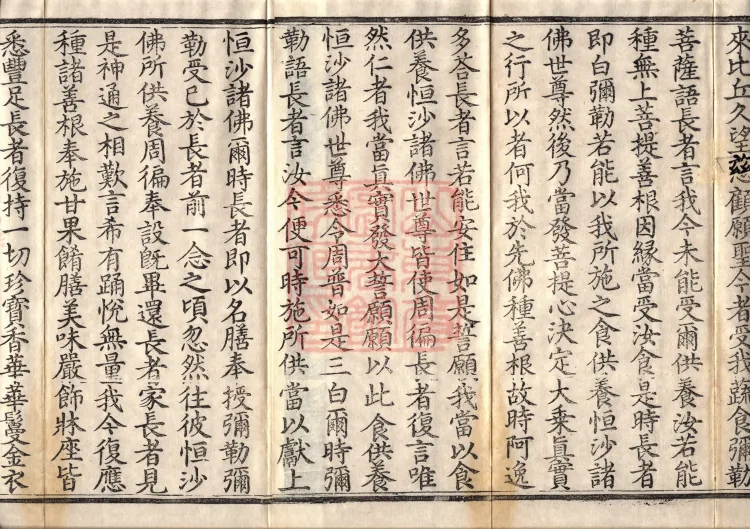 來比丘久望慈顧願聖今者受我蔬食彌勒
菩薩語長者言我今未能受爾供養汝若能
種無上菩提善根因縁當受汝食是時長者
即白彌勒若能以我所施之食供養恒沙諸
佛世尊然後乃當發菩提心決定大乘眞實
之行所以者何我於先佛種善根故時阿逸
多荅長者言若能安住如是誓願我當以食
供養恒沙諸佛世尊皆使周徧長者復言唯
然仁者我當眞實發大誓願願以此食供養
恒沙諸佛世尊悉令周普如是三白爾時彌
勒語長者言汝今便可時施所供當以獻上
恒沙諸佛爾時長者即以名膳奉授彌勒彌
勒受已於長者前一念之頃忽然往彼恒沙
佛所供養周徧奉設旣畢還長者家長者見
是神通之相歎言希有踊悅無量我今復應
種諸善根奉施甘果餚膳美味嚴飾牀座皆
悉豐足長者復持一切珍寶香華華鬘金衣